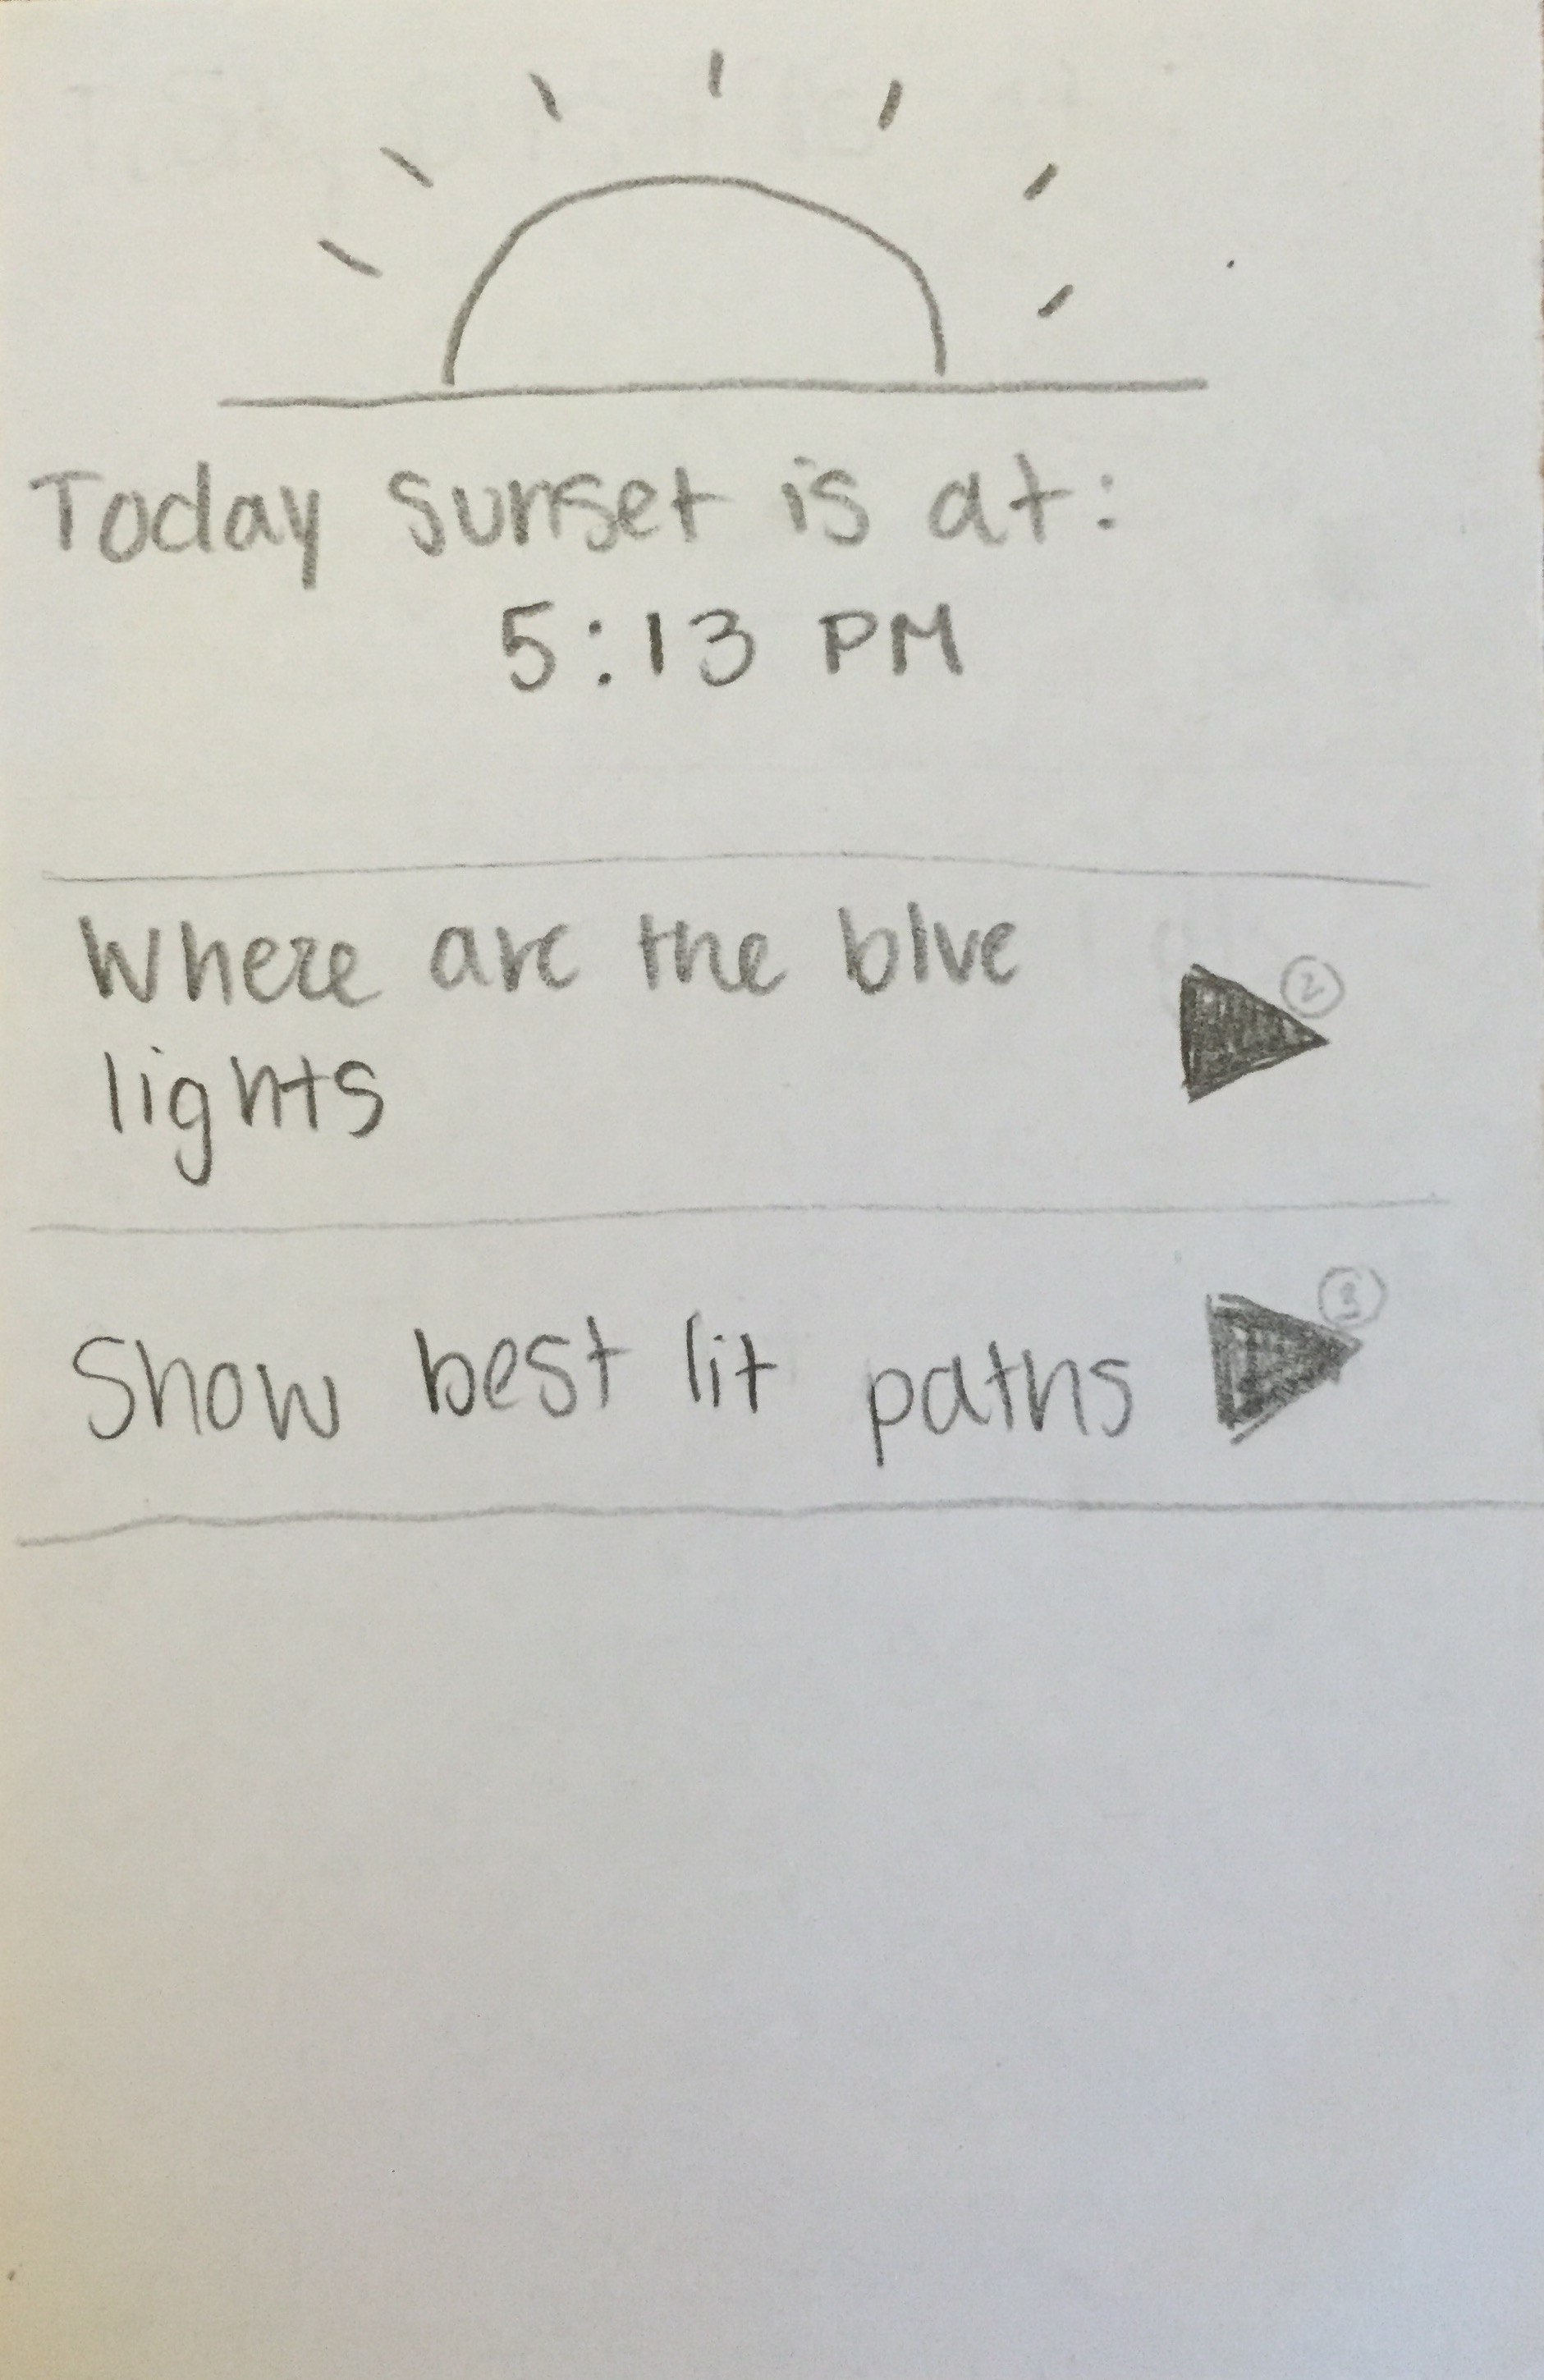 Today sunset is at:
5:13 PM
Where are the blue
2
lights
3
Show best lit paths